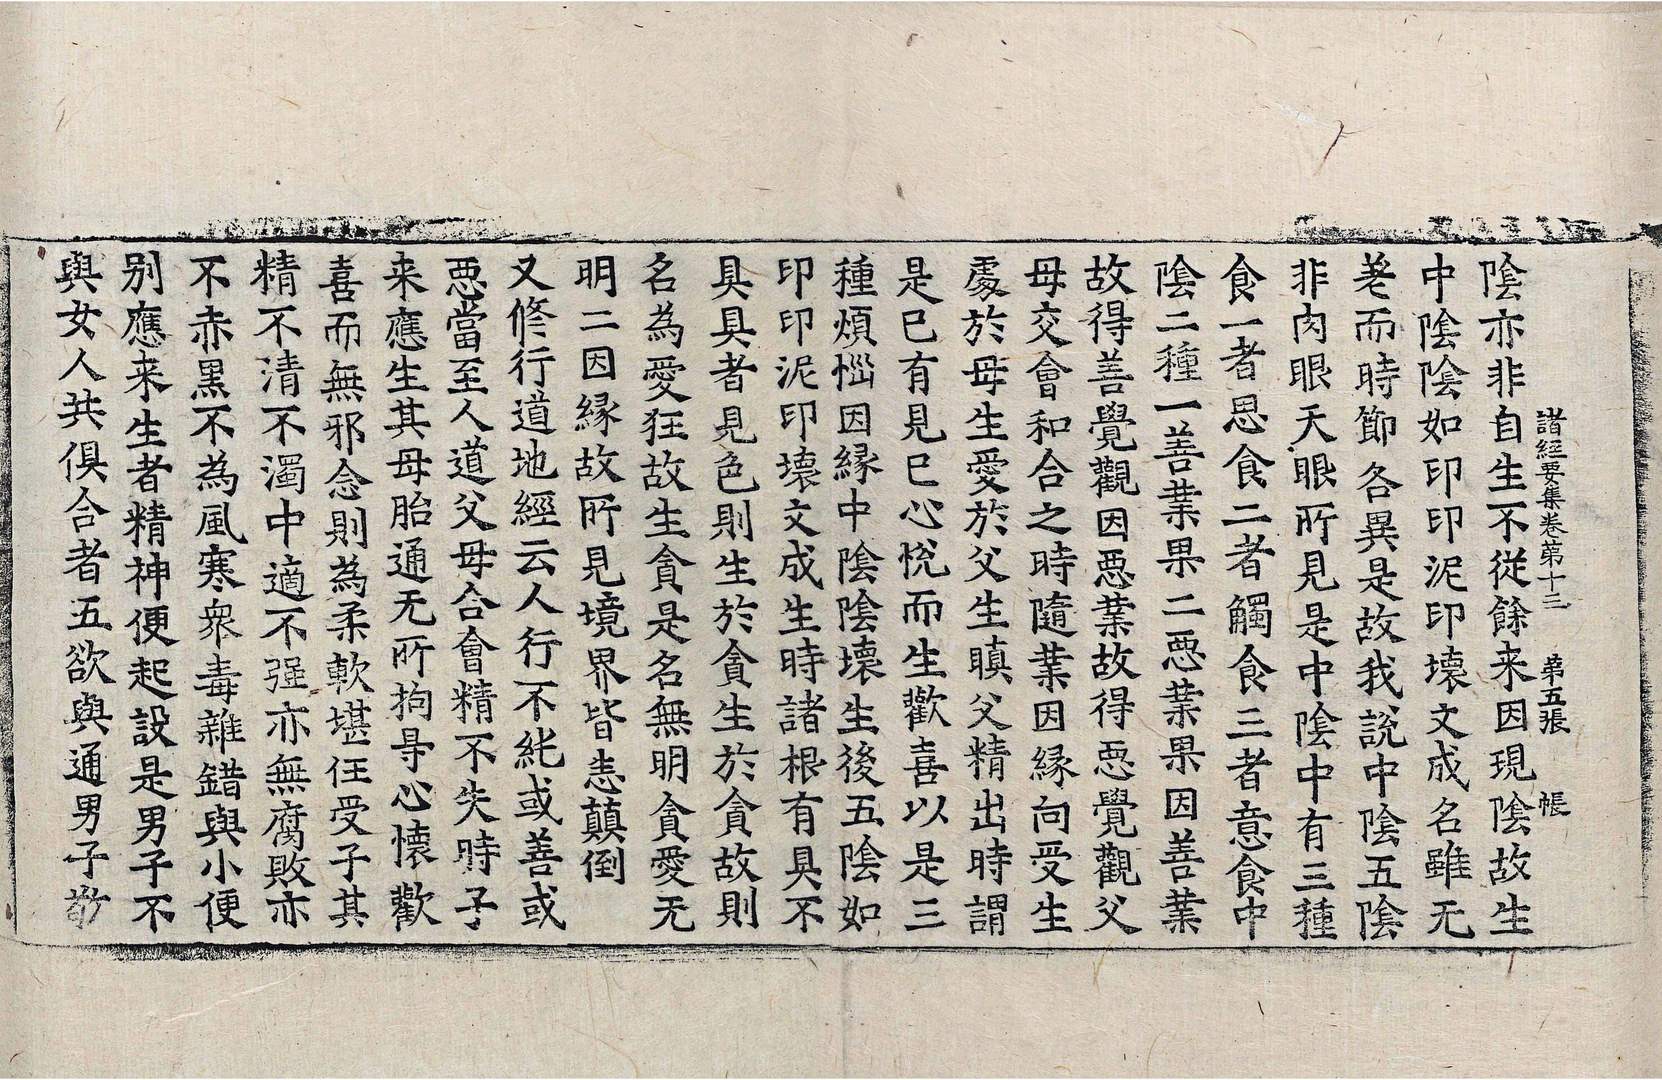 諸經要集卷第十三 第五張 帳
陰亦非自生不從餘来因現陰故生
中陰陰如印印泥印壞文成名雖无
差而時節各異是故我說中陰五陰
非肉眼天眼所見是中陰中有三種
食一者思食二者觸食三者意食中
陰二種一善業果二惡業果因善業
故得善覺觀因惡業故得惡覺觀父
母交會和合之時隨業因縁向受生
處於母生愛於父生瞋父精出時謂
是已有見已心悅而生歡喜以是三
種煩惱因縁中陰陰壞生後五陰如
印印泥印壞文成生時諸根有具不
具具者見色則生於貪生於貪故則
名為愛狂故生貪是名無明貪愛无
明二因縁故所見境界皆悉顛倒
又修行道地經云人行不純或善或
惡當至人道父母合會精不失時子
来應生其母胎通无所拘㝵心懷歡
喜而無邪念則為柔軟堪任受子其
精不清不濁中適不强亦無腐敗亦
不赤黑不為風寒衆毒雜錯與小便
別應来生者精神便起設是男子不
與女人共俱合者五欲與通男子敬